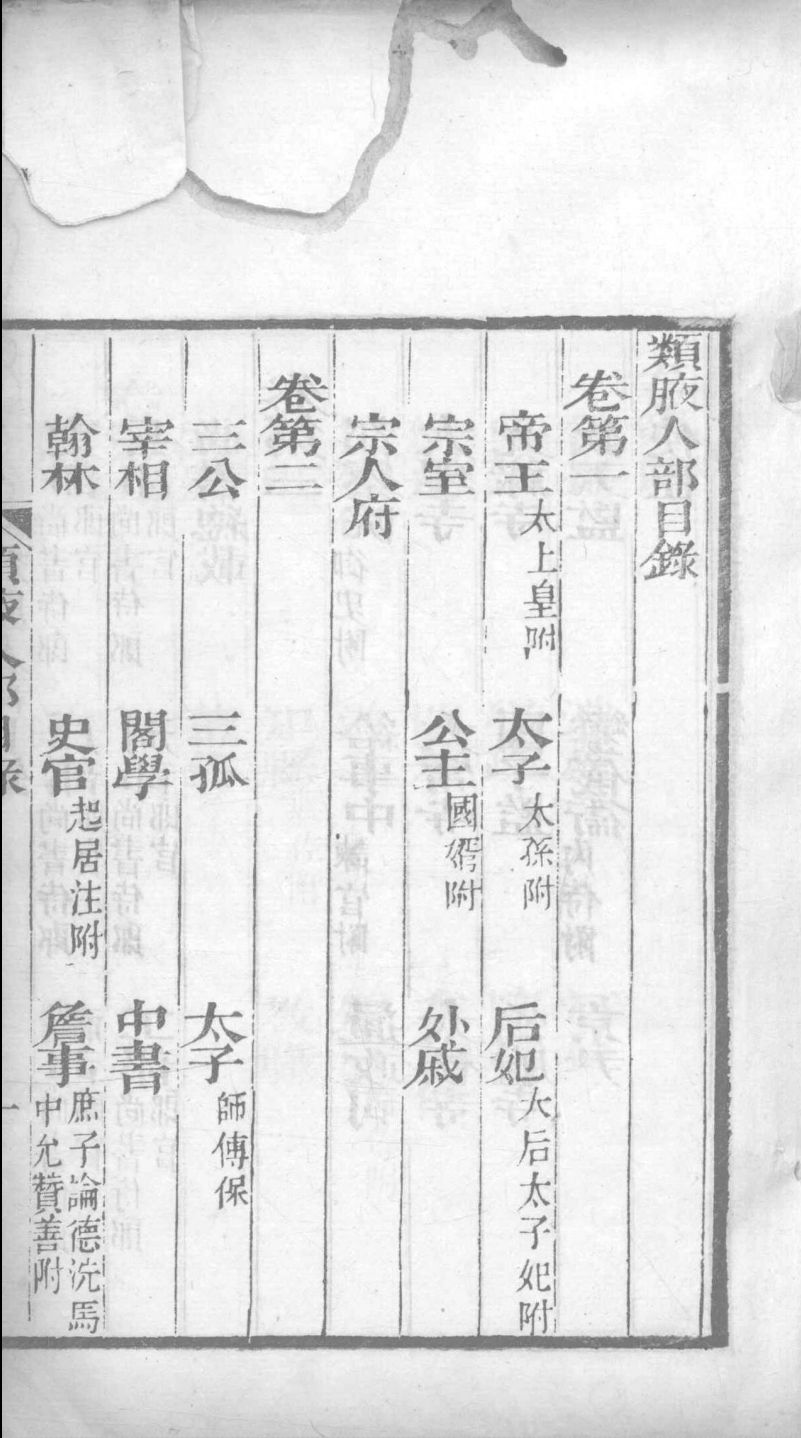 類腋人部目錄
卷第一
帝王太上皇附 太子太孫附 后妃大后太子妃附
宗室 公主國壻附 外戚
宗人府
卷第二
三公 三孤 太子師傅保
宰相 閣學 中書
翰林 史官起居注附 詹事庶子論德洗馬中允贊善附
類腋人部目錄
一